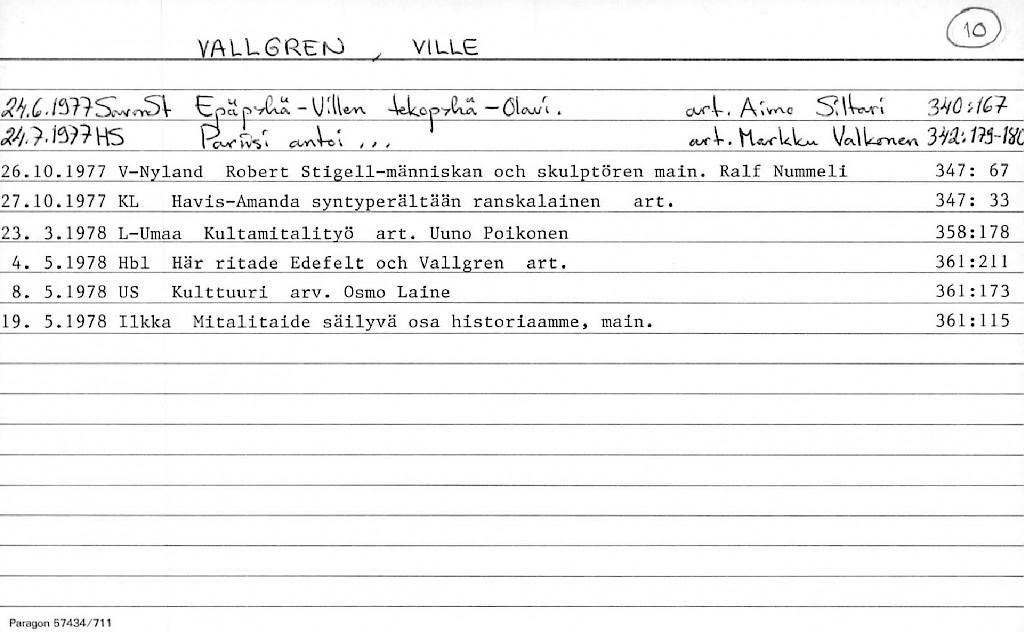 10
VALLGREN, VILLE
24.6.1977 SavonSt Epäpyhä-Villen tekopyhä-Olavi. art. Aimo Siltari 340:167
24.7.1977 HS Pariisi antoi ... art. Markku Valkonen 342:179-180
26.10.1977 V-Nyland Robert Stigell-människan och skulptören main. Ralf Nummeli 347: 67
27.10.1977 KL Havis-Amanda syntyperältään ranskalainen art. 347: 33
23. 3.1978 L-Umaa Kultamitalityö art. Uuno Poikonen 358:178
4. 5.1978 Hbl Här ritade Edefelt och Vallgren art. 361:211
8. 5.1978 US Kulttuuri arv. Osmo Laine 361:173
19. 5.1978 Ilkka Mitalitaide säilyvä osa historiaamme, main. 361:115
Paragon 57434/711